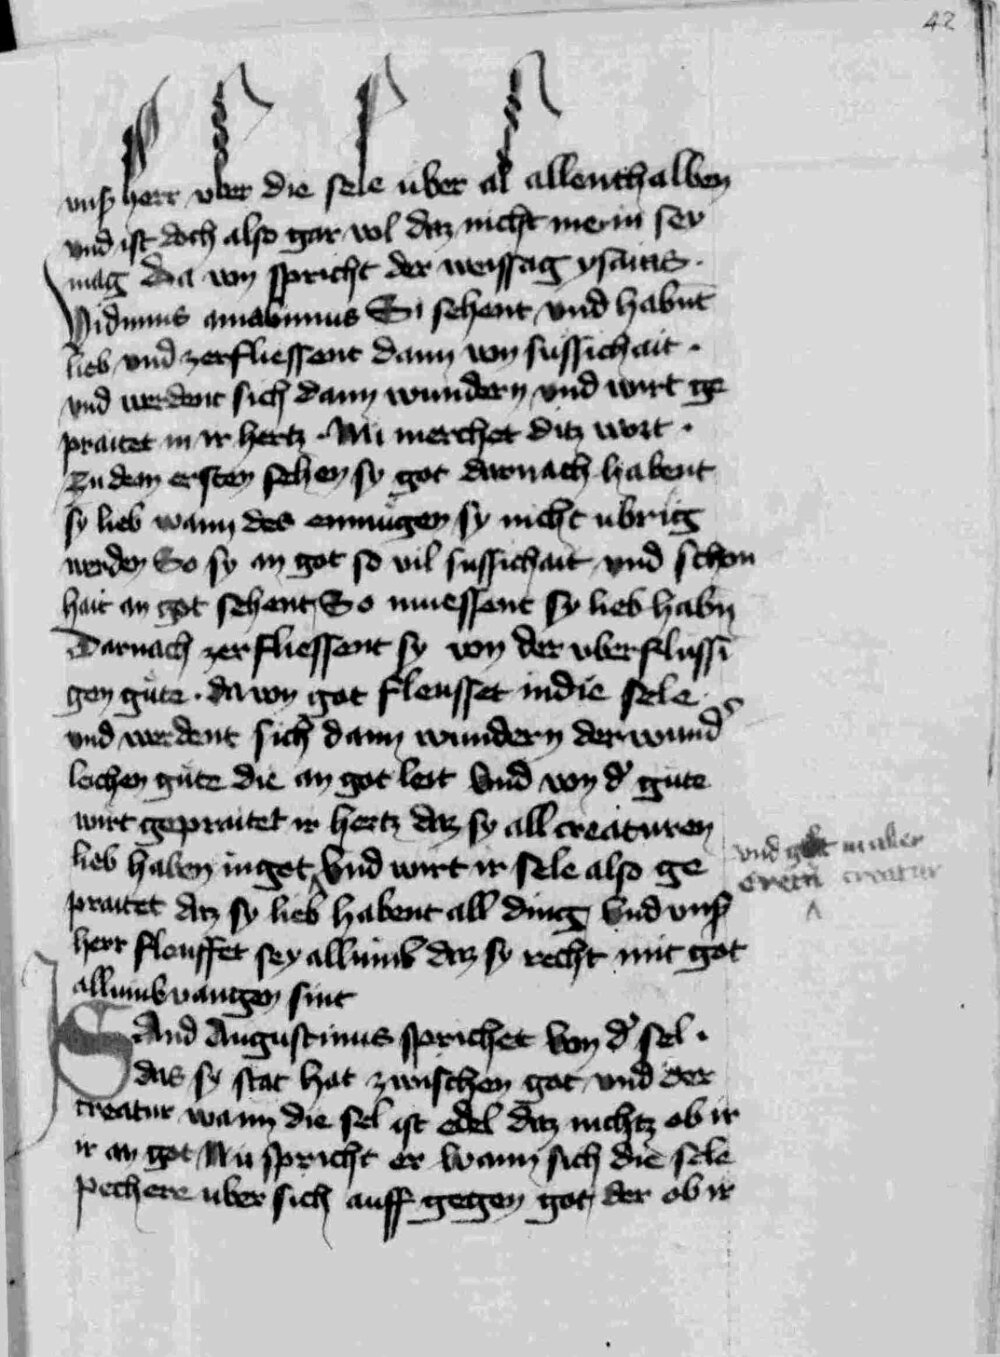 42
unſ herr vber die sele über al allenthalben
und ist doch also gar vol daz nicht mer in sey
mag Da von spricht der weissag ysaias.
Uidimus amabimus Si sehent und habnt
lieb und zerfliessent dann von sussichait.
und werdent sich dann wundern und wirt ge
praitet in ir hertz. Nu merchet ditz wort.
Zu dem ersten sehen sy got darnach habent
sy lieb wann des enmugen sy nicht übrig
werden So sy an got so vil sussichait und schon
hait an got sehent So muessent sy lieb habn
Darnach zerfliessent sy von der vberflussi
gen güte. da von got fleusset in die sele.
und werdent sich dann wundern der wund
leichen güte die an got leit Und von d güte
wirt gepraitet ir hertz daz sy all creaturen
lieb haben in got Und wirt ir sele also ge
und got in aller
creatur
praitet daz sy lieb habent all ding Und unſ
herr fleusset sey allumb daz sy recht mit got
allumbvangen sint
Sand Augustinus sprichet von d sel.
das sy stat hat zwischen got und der
creatur wann die sel ist edel daz nichtz ob ir
ir an got Nu spricht er wann sich die sele
pechere uber sich auff gegen got der ob ir